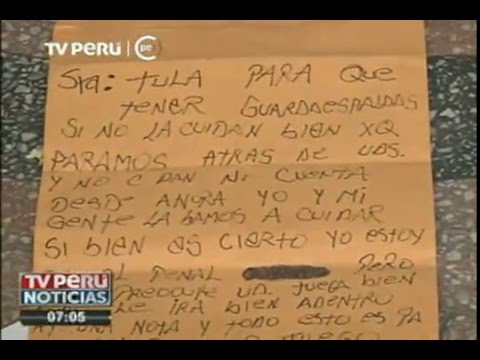 TV PERÚ pe
Sra: TULA PARA QUE
TENER GUARDAESPALDAS
SI NO LA CUIDAN BIEN XQ
PARAMOS ATRAS DE UDS.
Y NO C DAN NI CUENTA
DESDE AHORA YO Y MI
GENTE LA BAMOS A CUIDAR
SI BIEN ES CIERTO YO ESTOY
PENAL PERO
PREOCUPE UD. JUEGA BIEN
LE IRA BIEN ADENTRO
UNA NOTA Y TODO ESTO ES PA
TV PERÚ
NOTICIAS
07:05